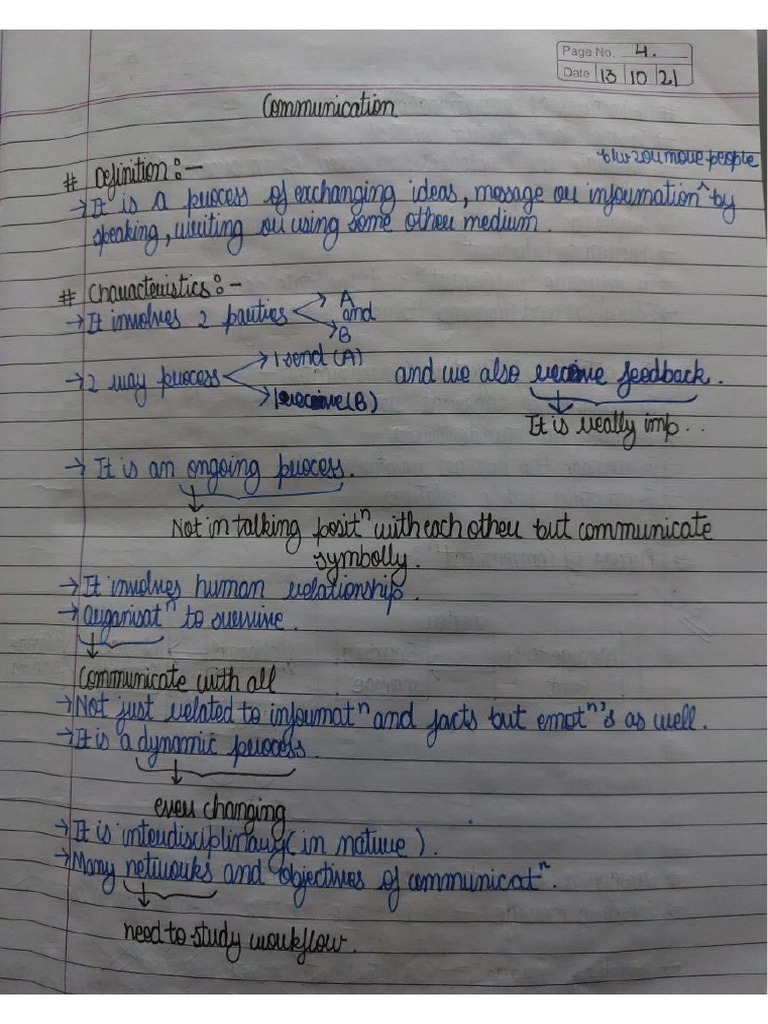 Page No. 4.
Date 13 10 21
Communication
b/w 2 or more people
# Definition:-
→ It is a process of exchanging ideas, message or information ^ by
speaking, writing or using some other medium.
# Characteristics:-
→ It involves 2 parties → A
and
→ B
→ 2 way process → 1 send (A) and we also receive feedback.
→ 1 receive (B)
It is really imp...
→ It is an ongoing process.
Not in talking positⁿ with each other but communicate
symbolly.
→ It involves human relationship.
→ Organisatⁿ to survive.
Communicate with all
→ Not just related to informatⁿ and facts but emotⁿ's as well.
→ It is a dynamic process.
ever changing
→ It is interdisciplinary (in nature).
→ Many networks and objectives of communicatⁿ.
need to study workflow.